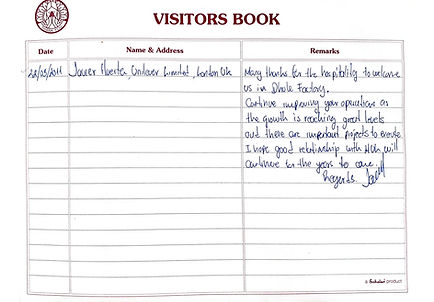 VISITORS BOOK
Date
Name & Address
Remarks
28/03/2011
Javier Huerta, Unilever Limited, London Uk
Many thanks for the hospitality to welcome
us in Dhule Factory.
Continue improving your operations as
the growth is reaching good levels
and there are important projects to execute
I hope good relationship with HUL will
Continue for the years to come.
Regards.
a Scholar product